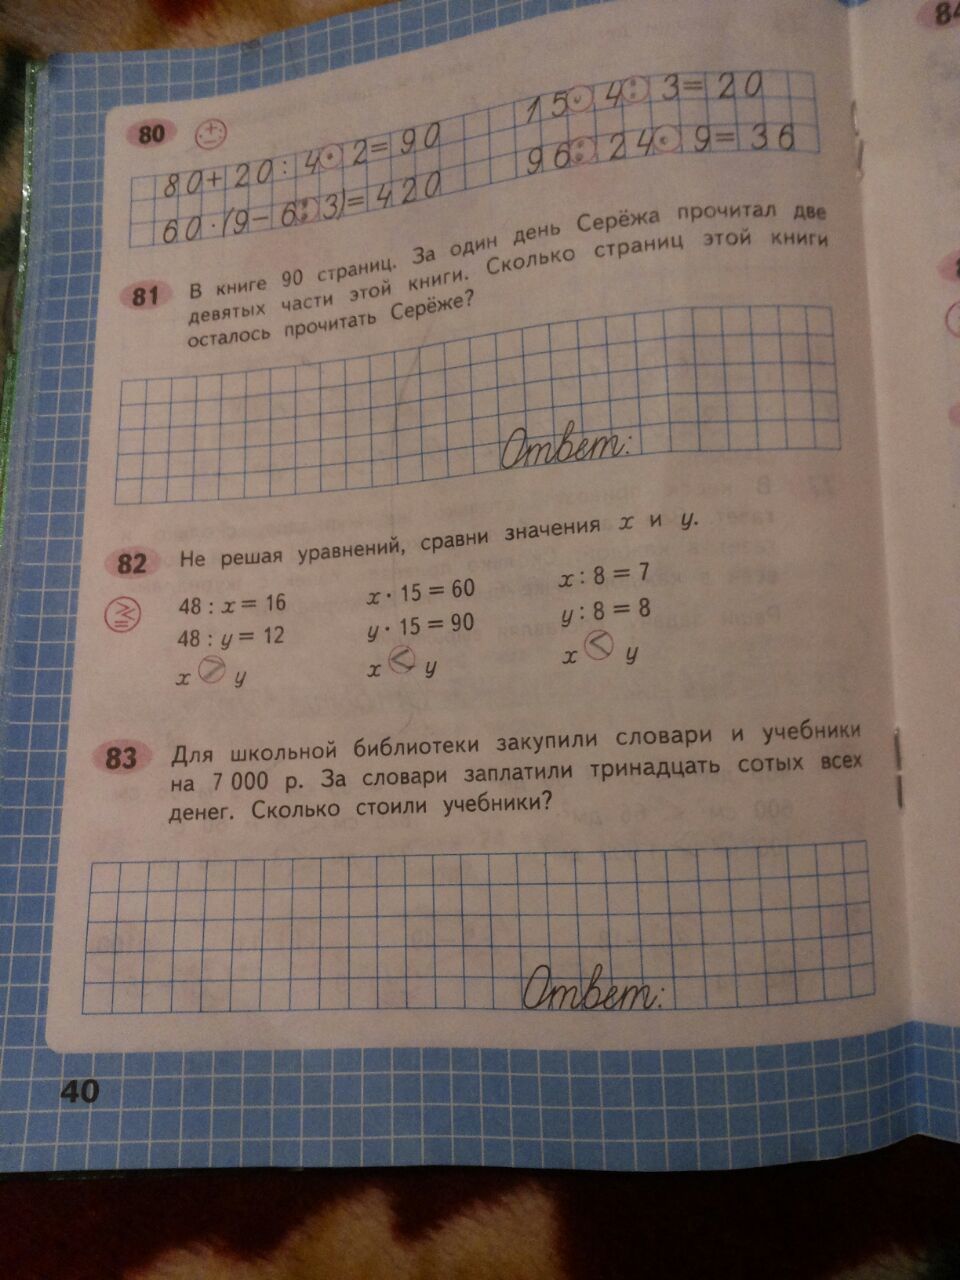 80
80+20:4·2=90
15·4:3=20
60·(9-6:3)=420
96:24·9=36
81 В книге 90 страниц. За один день Серёжа прочитал две
девятых части этой книги. Сколько страниц этой книги
осталось прочитать Серёже?
Ответ:
82 Не решая уравнений, сравни значения x и y.
48 : x = 16 x · 15 = 60 x : 8 = 7
48 : y = 12 y · 15 = 90 y : 8 = 8
x > y x < y x < y
83 Для школьной библиотеки закупили словари и учебники
на 7 000 р. За словари заплатили тринадцать сотых всех
денег. Сколько стоили учебники?
Ответ:
40
84